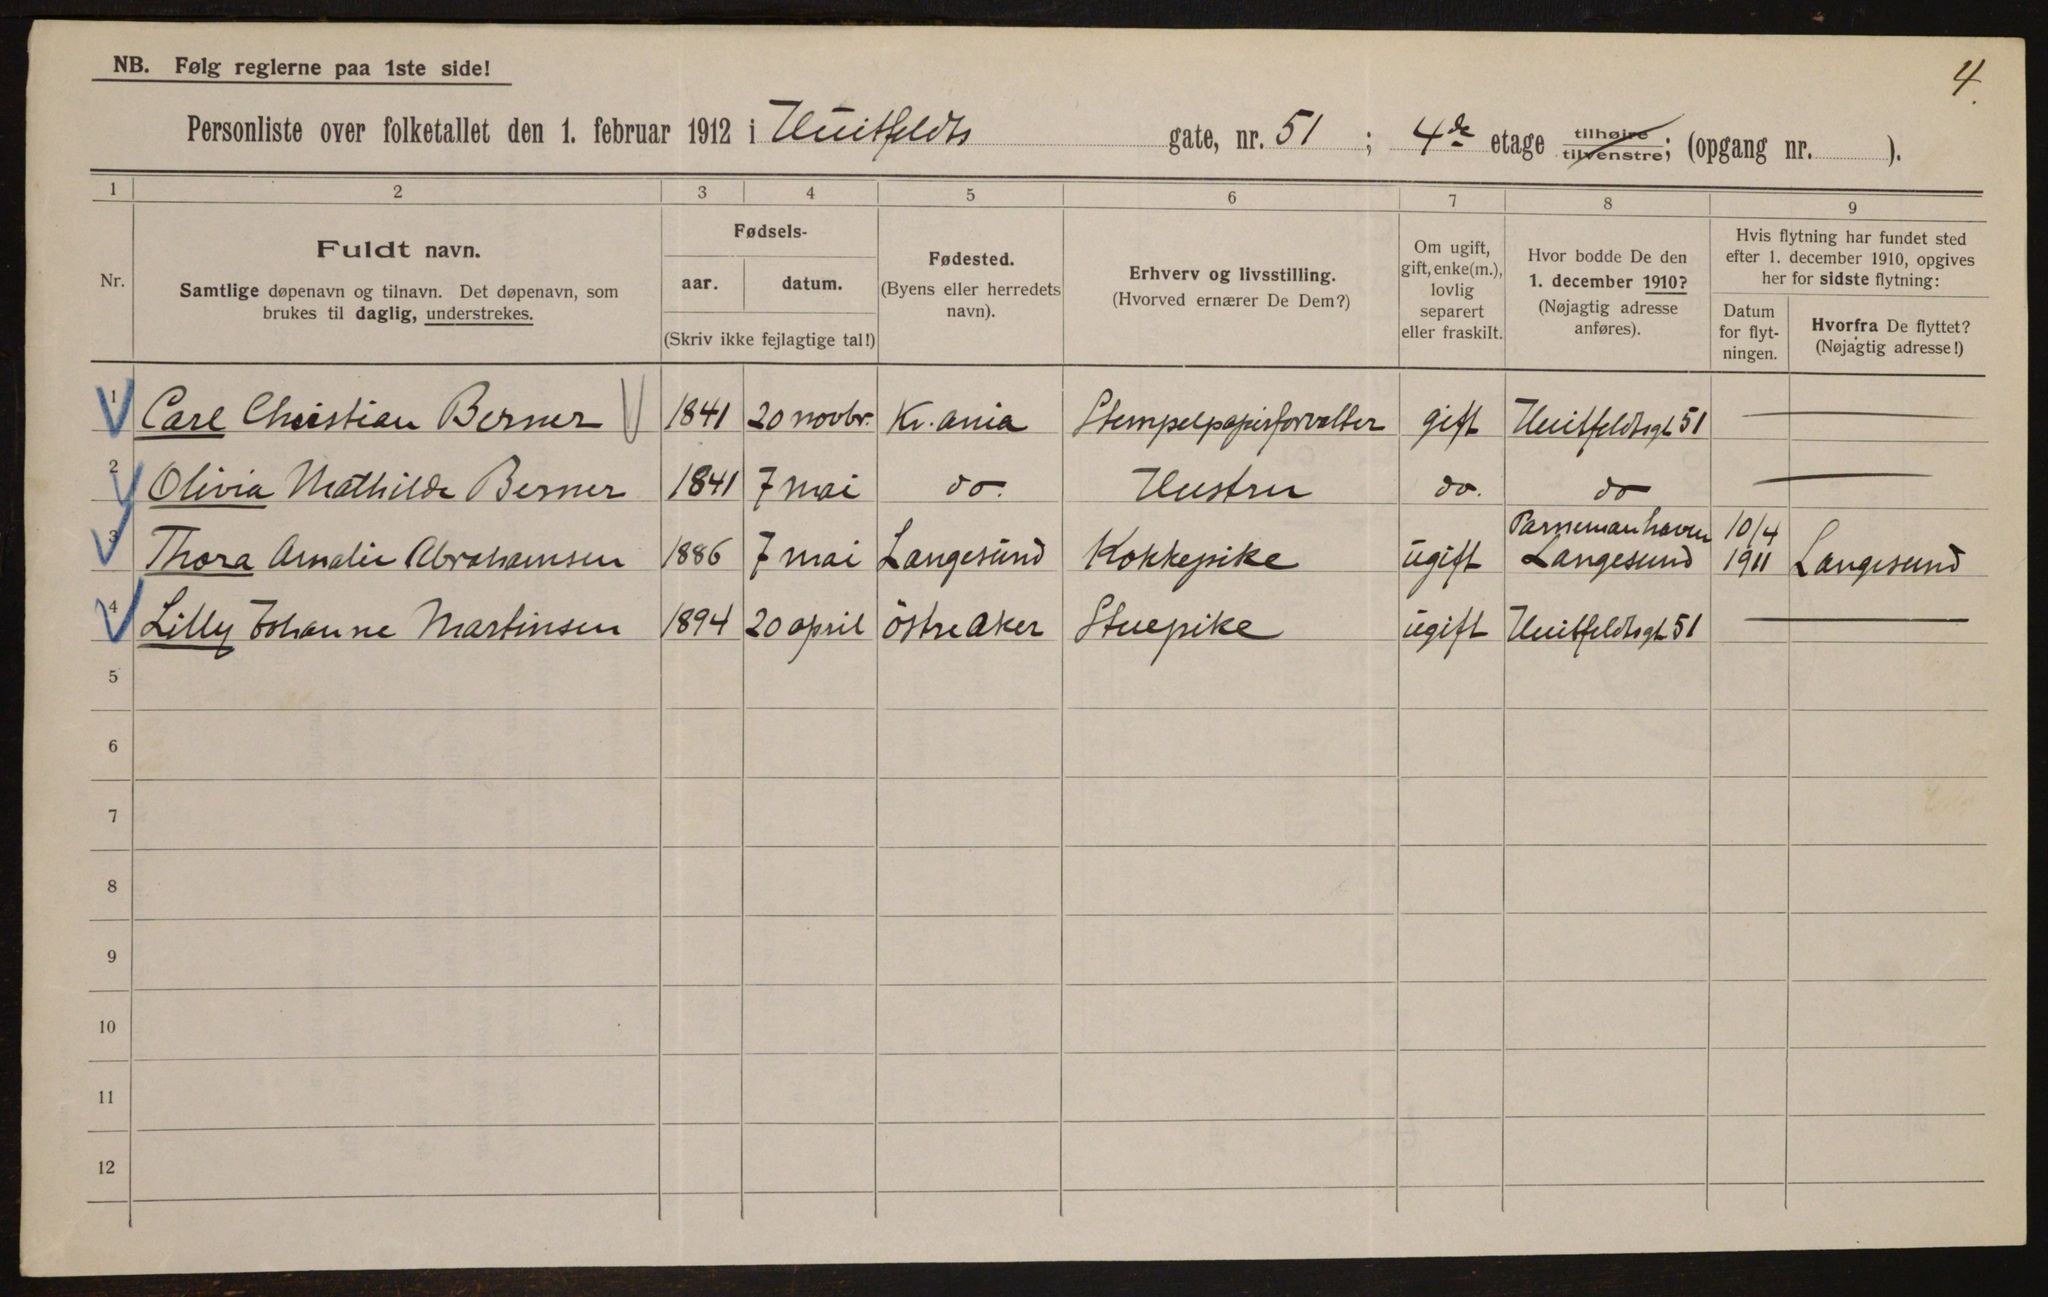 4.
NB. Følg reglerne paa 1ste side!
Personliste over folketallet den 1. februar 1912 i Huitfeldts gate, nr. 51 ; 4de etage tilhøire tilvenstre; (opgang nr. ).
1 2 3 4 5 6 7 8 9
Nr.
Fuldt navn.
Samtlige døpenavn og tilnavn. Det døpenavn, som
brukes til daglig, understrekes.
Fødsels-
aar. datum.
(Skriv ikke fejlagtige tal!)
Fødested.
(Byens eller herredets
navn).
Erhverv og livsstilling.
(Hvorved ernærer De Dem?)
Om ugift,
gift, enke(m.),
lovlig
separert
eller fraskilt.
Hvor bodde De den
1. december 1910?
(Nøjagtig adresse
anføres).
Hvis flytning har fundet sted
efter 1. december 1910, opgives
her for sidste flytning:
Datum
for flyt-
ningen.
Hvorfra De flyttet?
(Nøjagtig adresse!)
1 Carl Christian Berner 1841 20 novbr. Kr.ania Stempelpapirforvalter gift Huitfeldtsgt 51
2 Olivia Mathilde Berner 1841 7 mai do. Hustru do. do
3 Thora Amalie Abrahamsen 1886 7 mai Langesund Kokkepike ugift Langesund 10/4 1911 Langesund
4 Lilly Johanne Martinsen 1894 20 april östre Aker Stuepike ugift Huitfeldtsgt 51
5
6
7
8
9
10
11
12